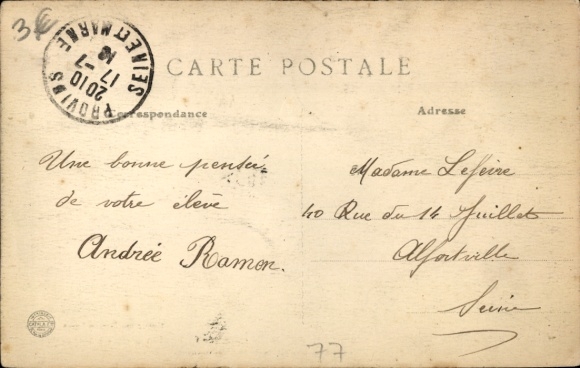 3€
PROVINS
SEINE ET MARNE
2010
17 -7
CARTE POSTALE
Correspondance
Adresse
Une bonne pensée
de votre élève
Andrée Ramon.
Madame Lefèvre
40 Rue du 14 Juillet
Alfortville
Seine
77